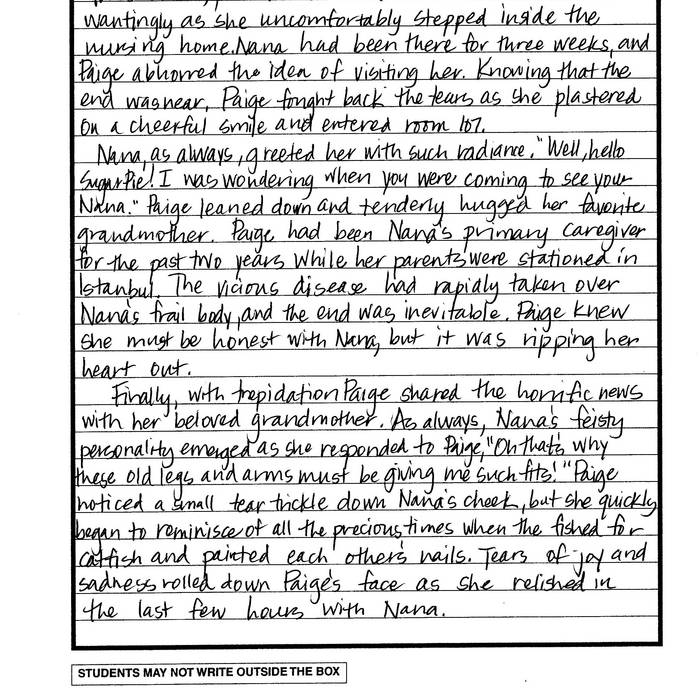 wantingly as she uncomfortably stepped inside the
nursing home. Nana had been there for three weeks, and
Paige abhorred the idea of visiting her. Knowing that the
end was near, Paige fought back the tears as she plastered
on a cheerful smile and entered room 107.
Nana, as always, greeted her with such radiance. "Well, hello
Sugar Pie! I was wondering when you were coming to see your
Nana." Paige leaned down and tenderly hugged her favorite
grandmother. Paige had been Nana's primary caregiver
for the past two years while her parents were stationed in
Istanbul. The vicious disease had rapidly taken over
Nana's frail body, and the end was inevitable. Paige knew
she must be honest with Nana, but it was ripping her
heart out.
Finally, with trepidation Paige shared the horrific news
with her beloved grandmother. As always, Nana's feisty
personality emerged as she responded to Paige, "Oh that's why
these old legs and arms must be giving me such fits!" Paige
noticed a small tear trickle down Nana's cheek, but she quickly
began to reminisce of all the precious times when the fished for
catfish and painted each other's nails. Tears of joy and
sadness rolled down Paige's face as she relished in
the last few hours with Nana.
STUDENTS MAY NOT WRITE OUTSIDE THE BOX